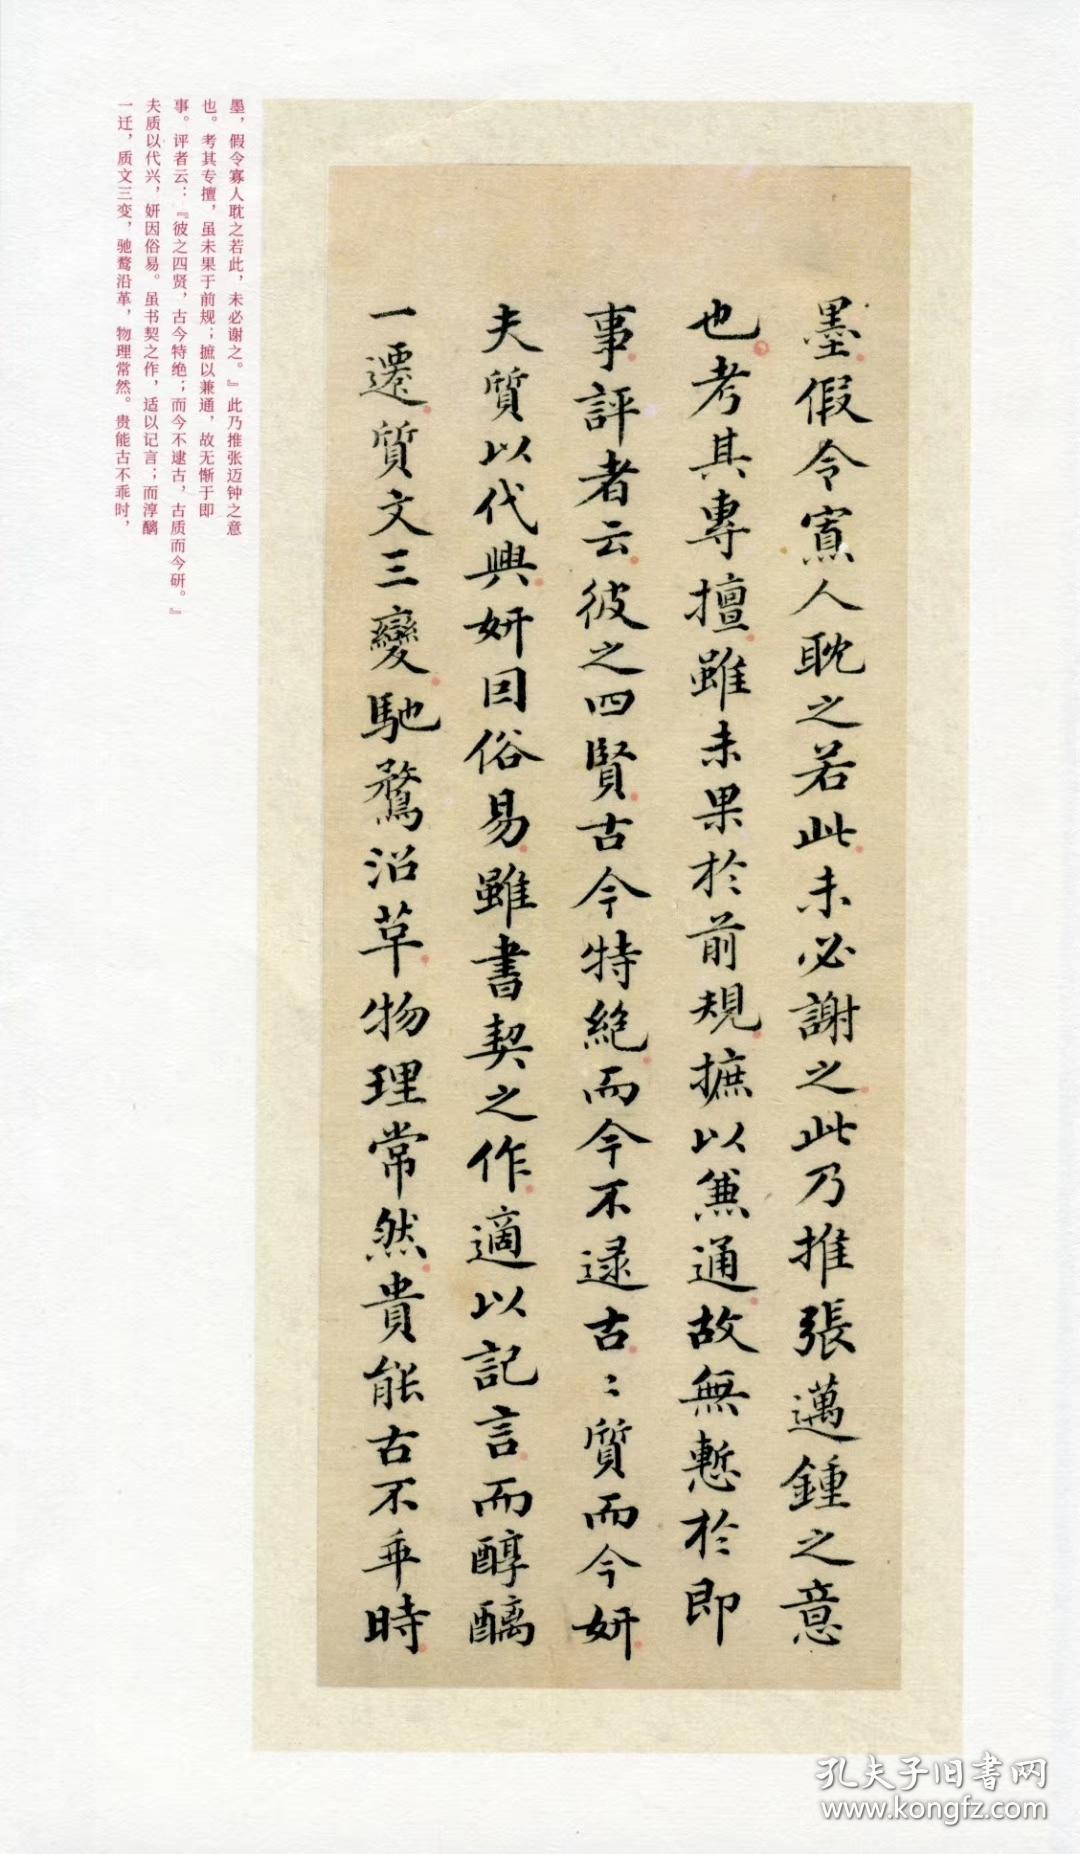 墨假令寡人耽之若此未必謝之此乃推張邁鍾之意
也考其專擅雖未果於前規摭以兼通故無慙於即
事評者云彼之四賢古今特絶而今不逮古〻質而今妍
夫質以代興妍因俗易雖書契之作適以記言而醇醨
一遷質文三變馳騖沿革物理常然貴能古不乖時
墨，假令寡人耽之若此，未必谢之。』此乃推张迈钟之意
也。考其专擅，虽未果于前规；摭以兼通，故无惭于即
事。评者云：『彼之四贤，古今特绝；而今不逮古，古质而今研。』
夫质以代兴，妍因俗易。虽书契之作，适以记言；而淳醨
一迁，质文三变，驰鹜沿革，物理常然。贵能古不乖时，
孔夫子旧书网
www.kongfz.com